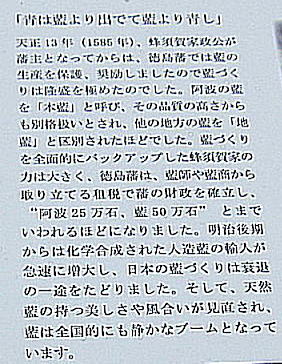 「青は藍より出でて藍より青し」
天正13年（1585年）、蜂須賀家政公が
藩主となってからは、徳島藩では藍の
生産を保護、奨励しましたので藍づく
りは隆盛を極めたのでした。阿波の藍
を「本藍」と呼び、その品質の高さから
も別格扱いとされ、他の地方の藍を「地
藍」と区別されたほどでした。藍づくり
を全面的にバックアップした蜂須賀家の
力は大きく、徳島藩は、藍師や藍商から
取り立てる租税で藩の財政を確立し、
“阿波25万石、藍50万石”とまで
いわれるほどになりました。明治後期
からは化学合成された人造藍の輸入が
急速に増大し、日本の藍づくりは衰退
の一途をたどりました。そして、天然
藍の持つ美しさや風合いが見直され、
藍は全国的にも静かなブームとなって
います。